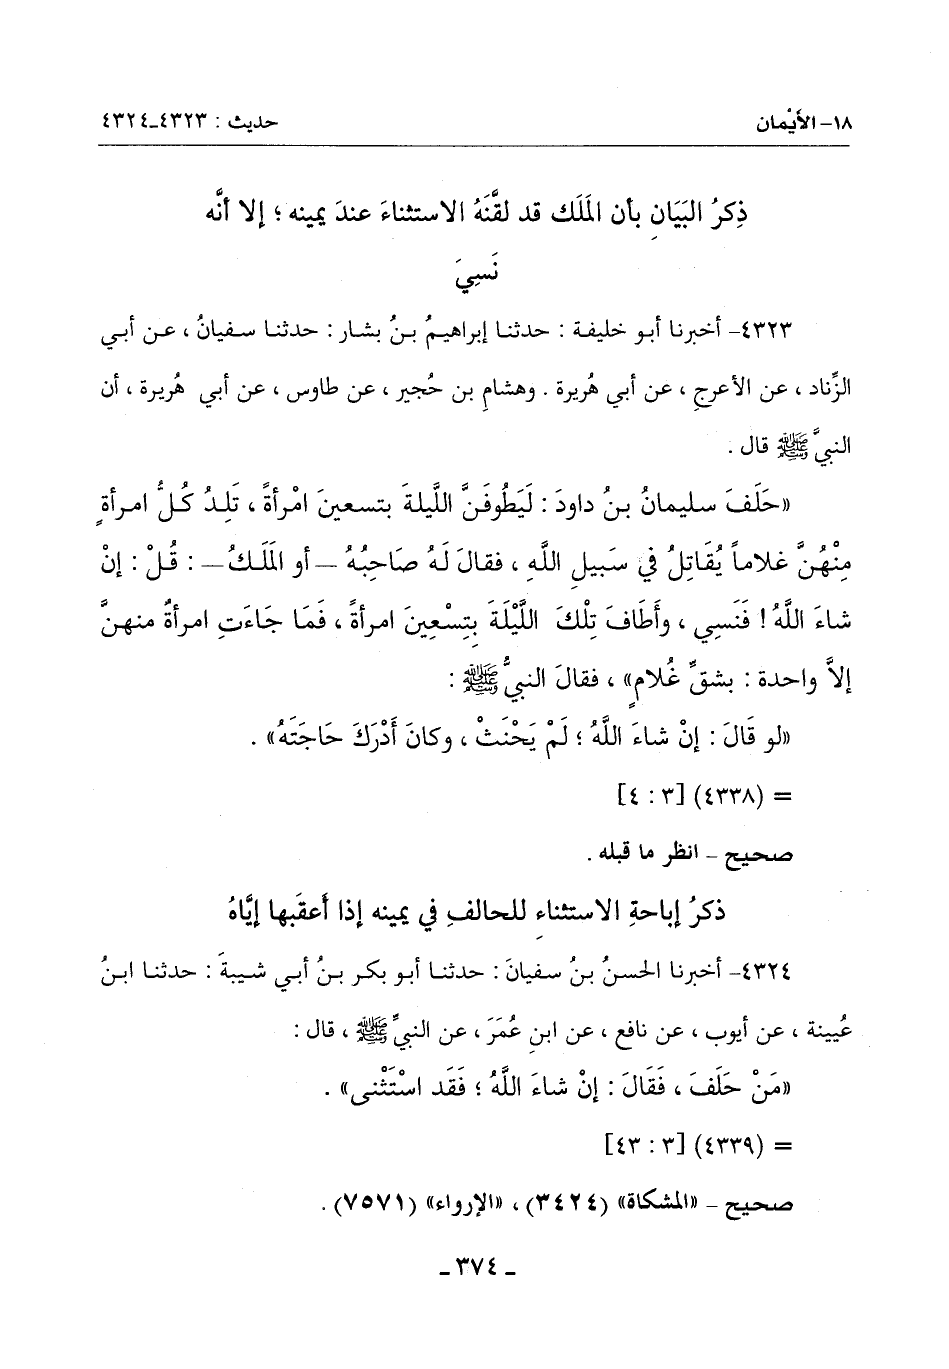 ١٨- الأَيْمان حديث : ٤٣٢٣ـ٤٣٢٤
ذِكرُ البَيَانِ بأن المَلَك قد لقَّنَهُ الاستثناءَ عندَ يمينه ؛ إلا أنَّه
نَسِيَ
٤٣٢٣- أخبرنا أبو خليفة : حدثنا إبراهيمُ بنُ بشار : حدثنا سفيانُ ، عن أبي
الزِّناد ، عن الأعرجِ ، عن أبي هُريرة . وهشامِ بن حُجير ، عن طاوس ، عن أبي هُريرة ، أن
النبيَّ ﷺ قال .
«حَلَفَ سليمانُ بنُ داودَ : لَيَطُوفَنَّ اللَّيلةَ بتسعينَ امْرأةً ، تَلِدُ كُلُّ امرأةٍ
مِنْهُنَّ غلاماً يُقَاتِلُ في سَبيلِ اللَّهِ ، فقالَ لَهُ صَاحِبُهُ –أو المَلَكُ– : قُلْ : إنْ
شاءَ اللَّهُ ! فَنَسِي ، وأَطَافَ تِلْكَ اللَّيْلَةَ بِتِسْعِينَ امرأةً ، فَمَا جَاءَتِ امرأةٌ منهنَّ
إلاَّ واحدة : بشقِّ غُلامٍ» ، فقالَ النبيُّ ﷺ :
«لو قَالَ : إنْ شاءَ اللَّهُ ؛ لَمْ يَحْنَثْ ، وكانَ أَدْرَكَ حَاجَتَهُ» .
= (٤٣٣٨) [٣ : ٤]
صحيح - انظر ما قبله .
ذكرُ إباحةِ الاستثناءِ للحالفِ في يمينه إذا أعقَبها إيَّاهُ
٤٣٢٤- أخبرنا الحسنُ بنُ سفيانَ : حدثنا أبو بكر بنُ أبي شيبةَ : حدثنا ابنُ
عُيينة ، عن أيوب ، عن نافع ، عن ابنِ عُمَرَ ، عن النبيِّ ﷺ ، قال :
«مَنْ حَلَفَ ، فَقَالَ : إنْ شاءَ اللَّهُ ؛ فَقَد اسْتَثْنى» .
= (٤٣٣٩) [٣ : ٤٣]
صحيح - «المشكاة» (٣٤٢٤) ، «الإرواء» (٧٥٧١) .
ـ ٣٧٤ ـ